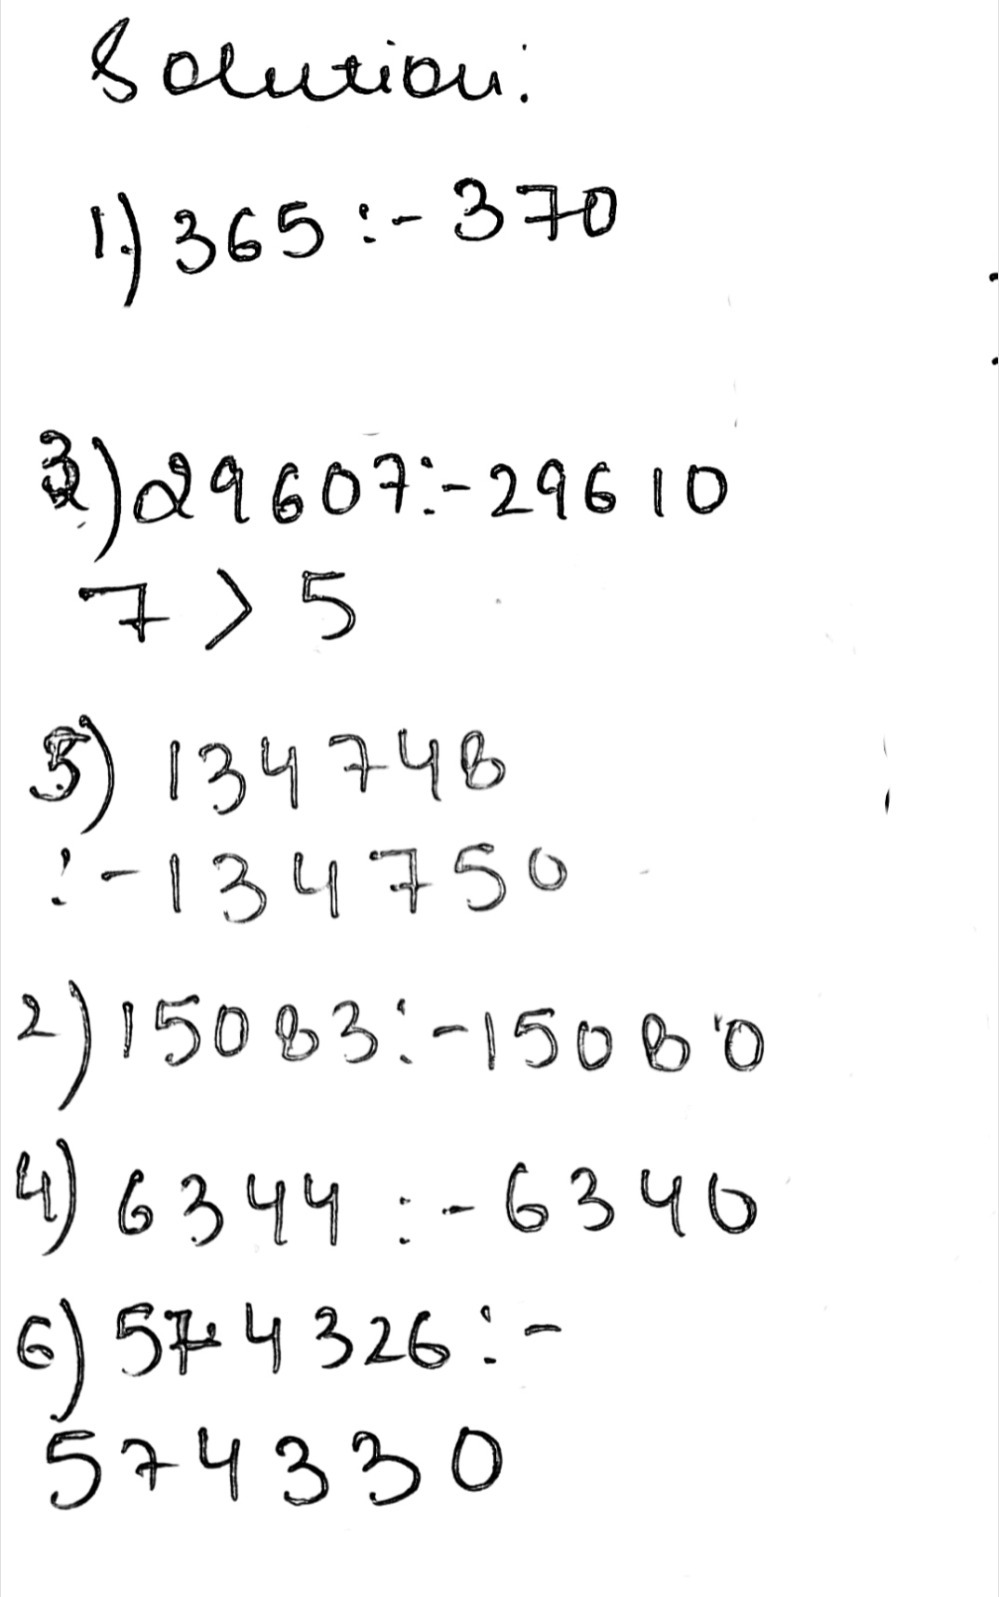 Solution:
1.) 365 :- 370
3) 29607:- 29610
7 > 5
5) 134748
:- 134750
2) 15083:- 15080
4) 6344 :- 6340
6) 574326:-
574330